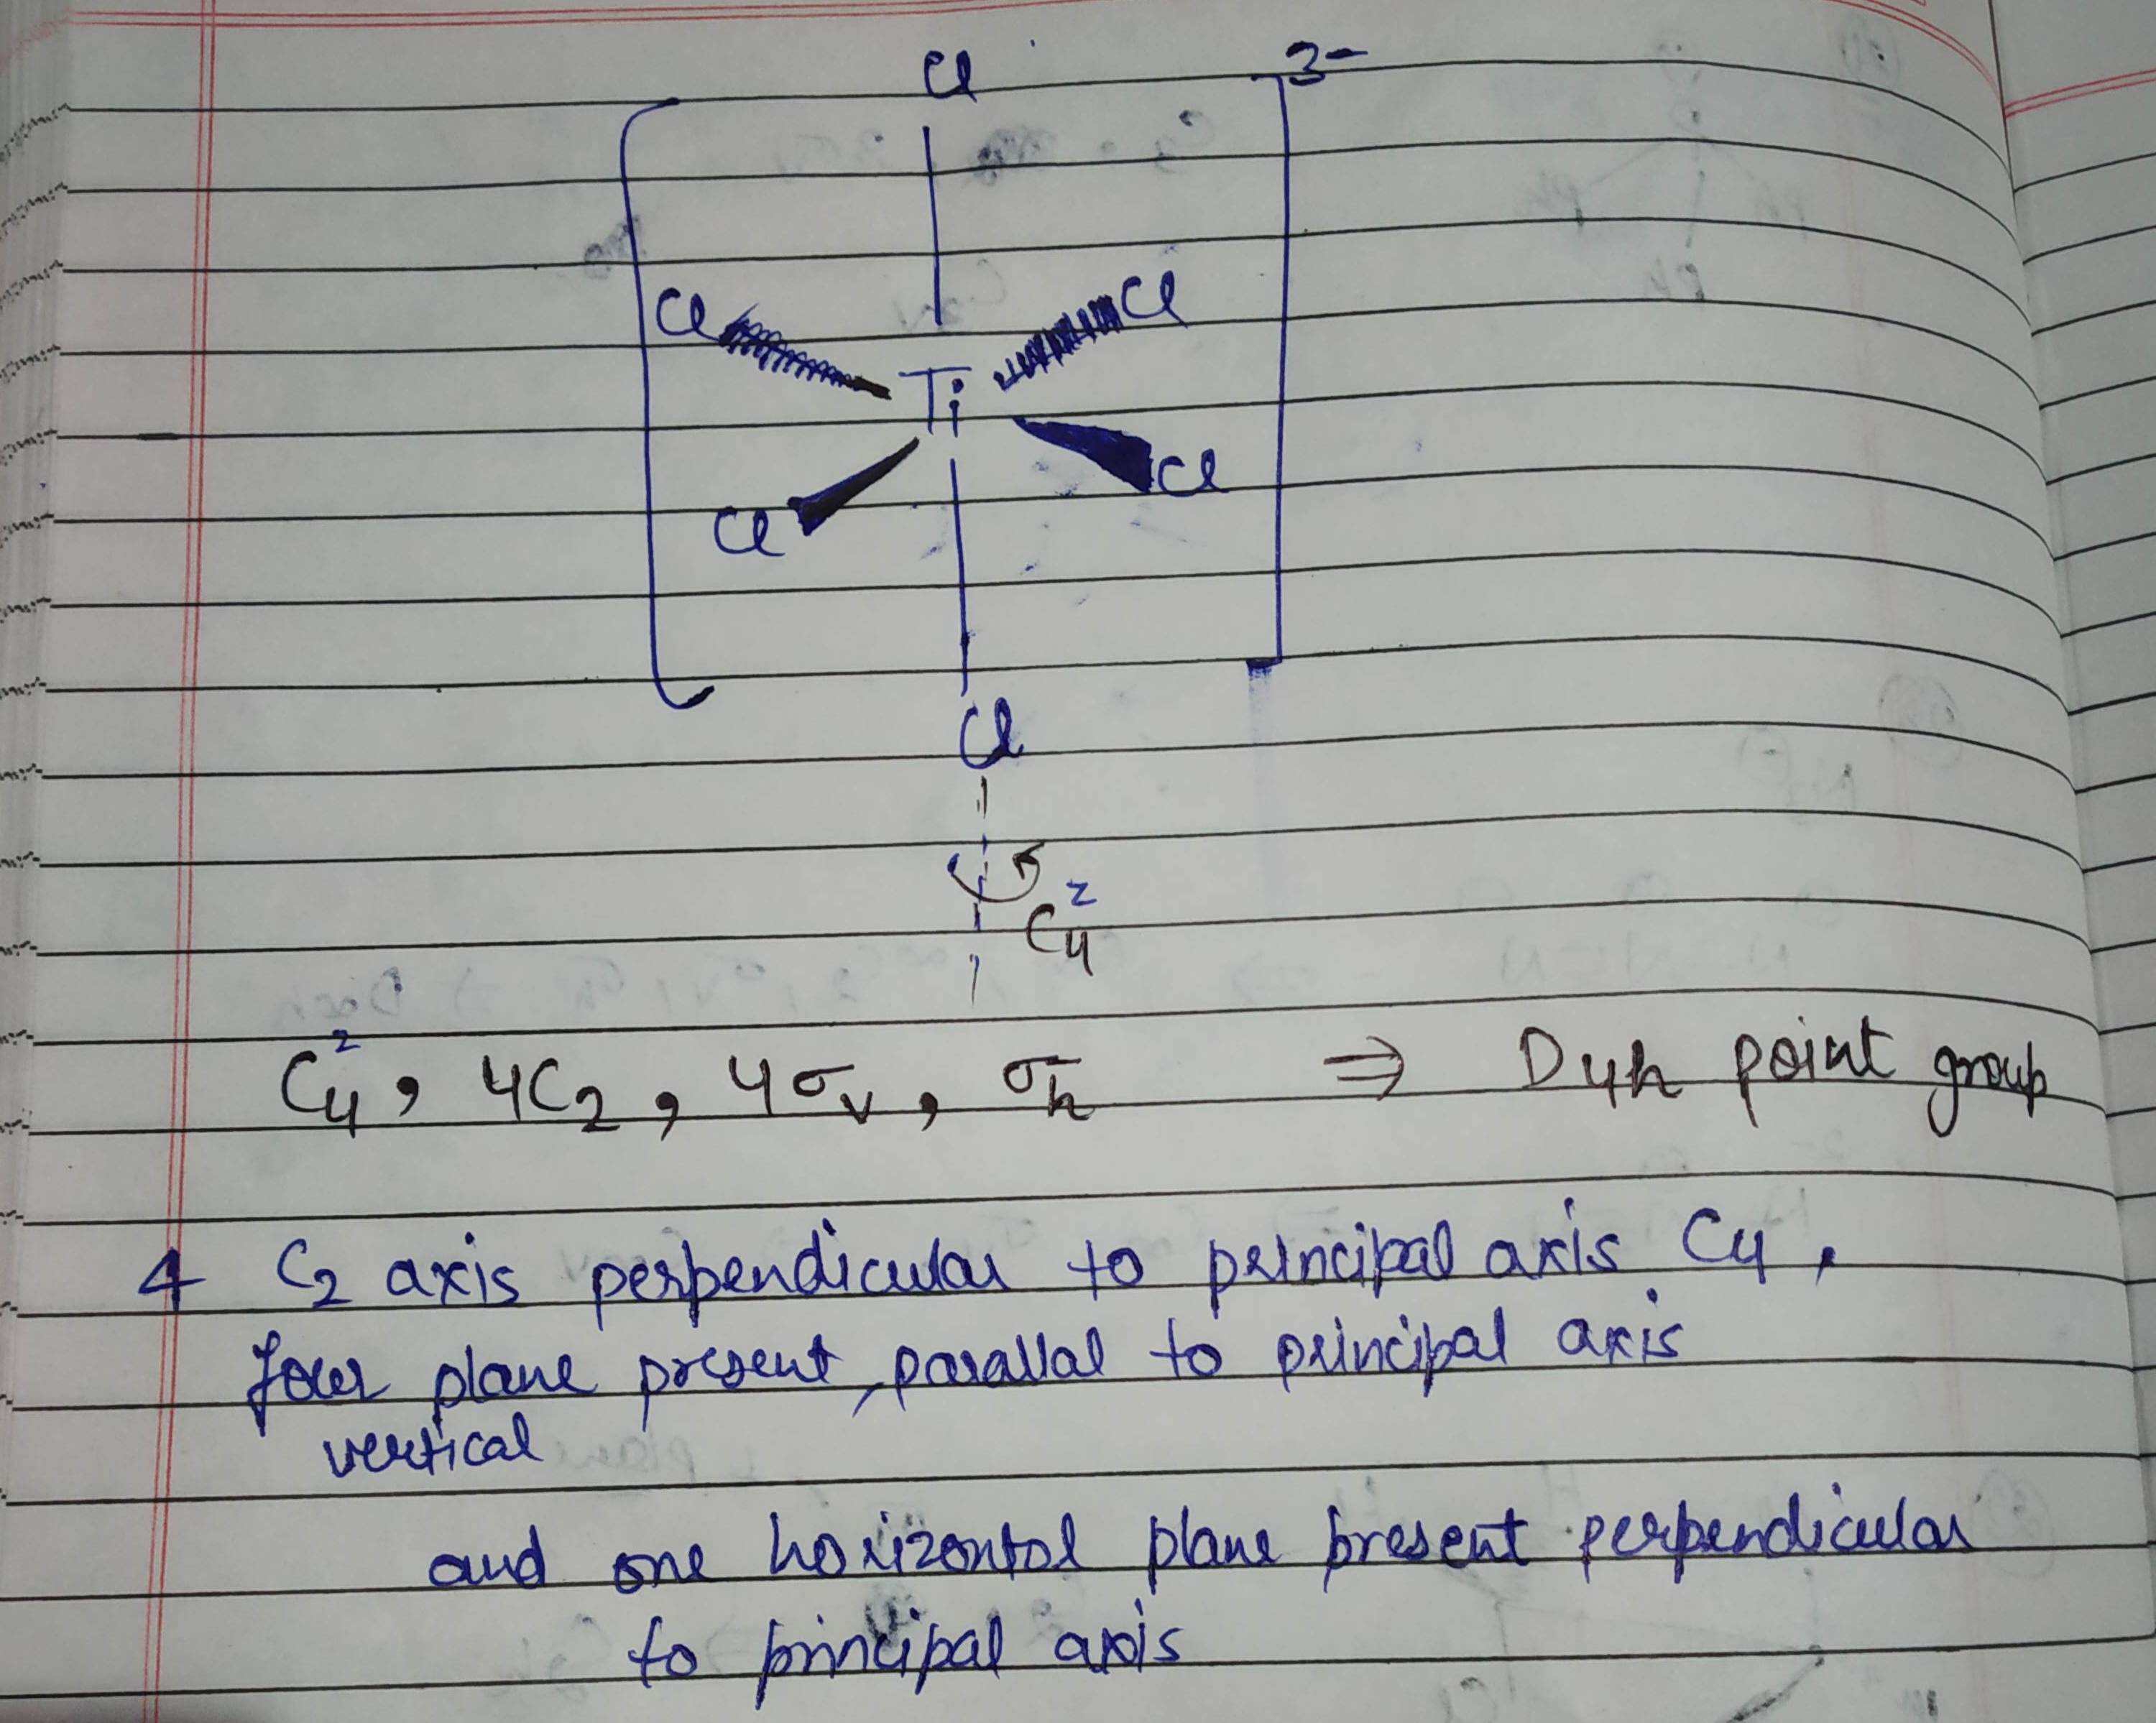 Cl
3-
Cl Cl
Ti
Cl Cl
Cl
C₄^z
C₄^z, 4C₂, 4σᵥ, σₕ ⇒ D4h point group
4 C₂ axis perpendicular to principal axis C4,
four plane present, parallal to principal axis
vertical
and one horizontal plane present perpendicular
to principal axis